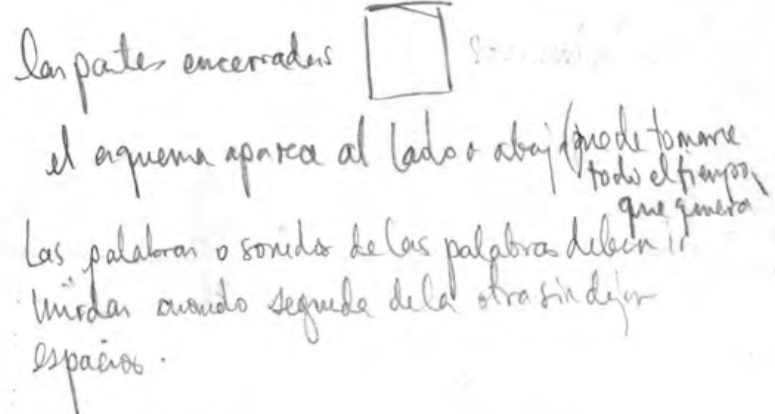 las partes encerradas
el esquema aparece al lado o abajo (puede tomarme
todo el tiempo
que quiera
Las palabras o sonido de las palabras deben ir
unidas cuando seguida de la otra sin dejar
espacios.